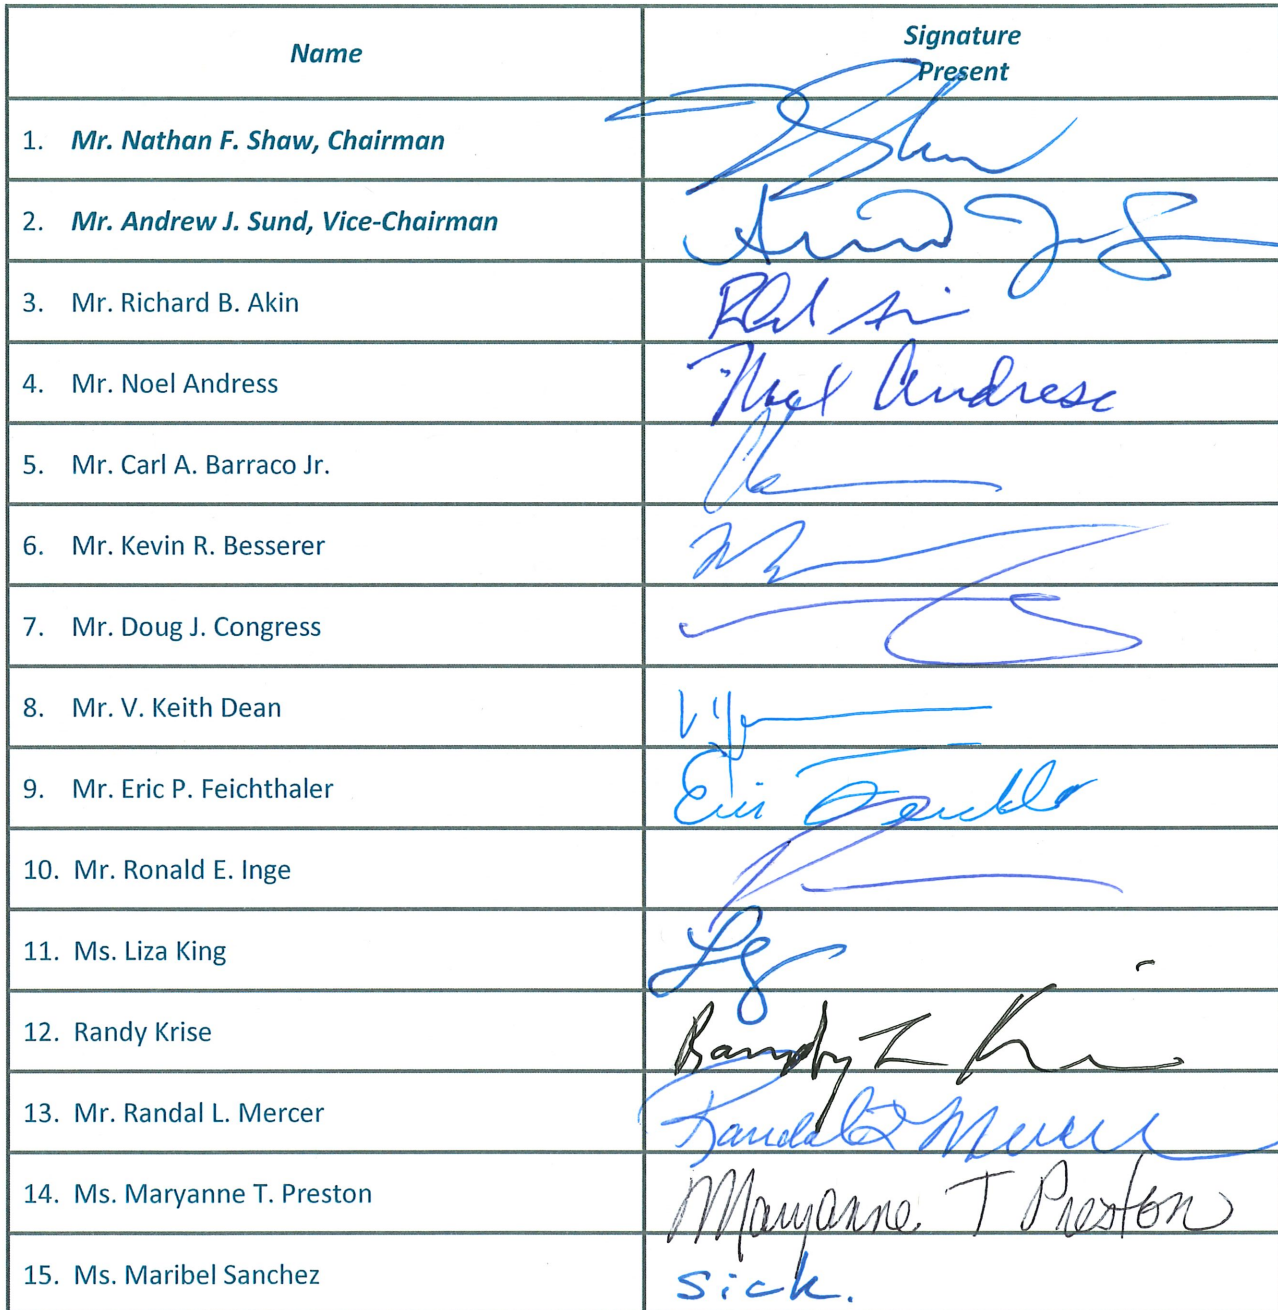 Name
Signature
Present
1. Mr. Nathan F. Shaw, Chairman
2. Mr. Andrew J. Sund, Vice-Chairman
3. Mr. Richard B. Akin
4. Mr. Noel Andress
Noel Andress
5. Mr. Carl A. Barraco Jr.
6. Mr. Kevin R. Besserer
7. Mr. Doug J. Congress
8. Mr. V. Keith Dean
9. Mr. Eric P. Feichthaler
Eric
10. Mr. Ronald E. Inge
11. Ms. Liza King
12. Randy Krise
Randy L
13. Mr. Randal L. Mercer
Randal L Mercer
14. Ms. Maryanne T. Preston
Maryanne T Preston
15. Ms. Maribel Sanchez
sick.